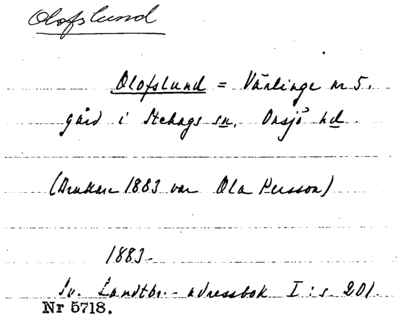 Olofslund
Olofslund = Vänlinge nr 5.
gård i Stehags sn, Onsjö hd
(Brukare 1883 var Ola Persson)
1883.
Sv. Landtbr.-adressbok I: s. 201.
Nr 5718.